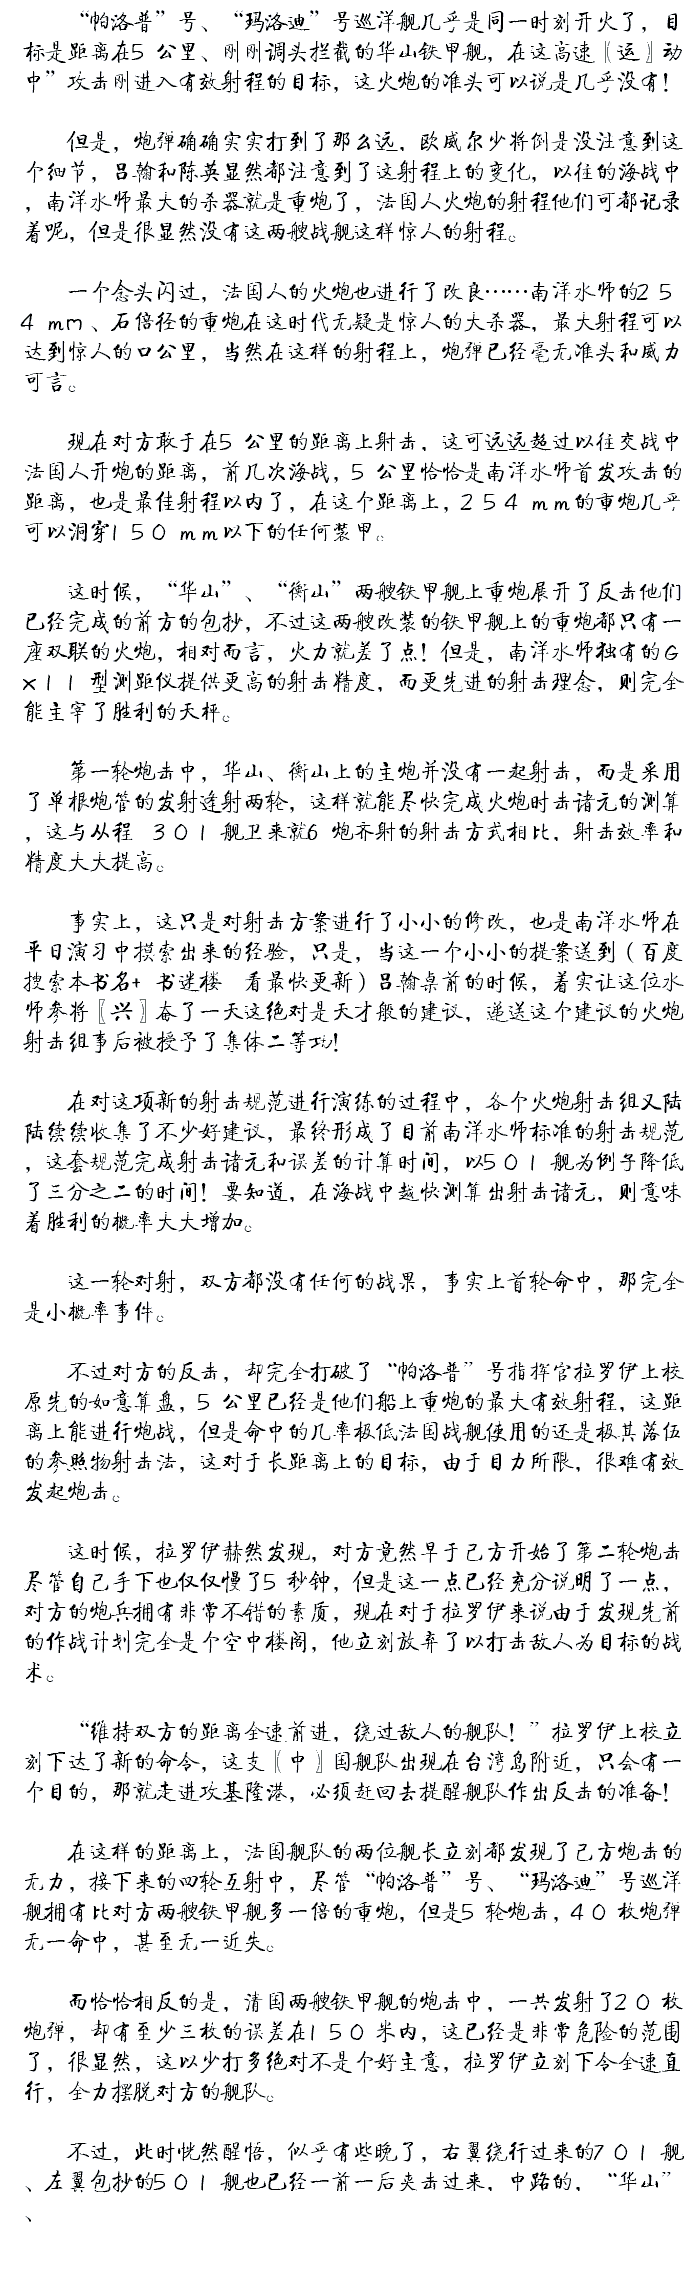 “帕洛普”号、“玛洛迪”号巡洋舰几乎是同一时刻开火了，目
标是距离在5 公里、刚刚调头拦截的华山铁甲舰，在这高速〖运〗动
中”攻击刚进入有效射程的目标，这火炮的准头可以说是几乎没有！
但是，炮弹确确实实打到了那么远，欧威尔少将倒是没注意到这
个细节，吕翰和陈英显然都注意到了这射程上的变化，以往的海战中
，南洋水师最大的杀器就是重炮了，法国人火炮的射程他们可都记录
着呢，但是很显然没有这两艘战舰这样惊人的射程。
一个念头闪过，法国人的火炮也进行了改良……南洋水师的２５
４ mm、石倍径的重炮在这时代无疑是惊人的大杀器，最大射程可以
达到惊人的口公里，当然在这样的射程上，炮弹已经毫无准头和威力
可言。
现在对方敢于在5 公里的距离上射击，这可远远超过以往交战中
法国人开炮的距离，前几次海战，5 公里恰恰是南洋水师首发攻击的
距离，也是最佳射程以内了，在这个距离上，２５４ mm的重炮几乎
可以洞穿１５０ mm以下的任何装甲。
这时候，“华山”、“衡山”两艘铁甲舰上重炮展开了反击他们
已经完成的前方的包抄，不过这两艘改装的铁甲舰上的重炮都只有一
座双联的火炮，相对而言，火力就差了点！但是，南洋水师独有的G
x１１ 型测距仪提供更高的射击精度，而更先进的射击理念，则完全
能主宰了胜利的天枰。
第一轮炮击中，华山、衡山上的主炮并没有一起射击，而是采用
了单根炮管的发射连射两轮，这样就能尽快完成火炮时击诸元的测算
，这与从程 ３０１ 舰卫来就6 炮齐射的射击方式相比，射击效率和
精度大大提高。
事实上，这只是对射击方案进行了小小的修改，也是南洋水师在
平日演习中摸索出来的经验，只是，当这一个小小的提案送到（百度
搜索本书名+ 书迷楼 看最快更新）吕翰桌前的时候，着实让这位水
师参将〖兴〗奋了一天这绝对是天才般的建议，递送这个建议的火炮
射击组事后被授予了集体二等功！
在对这项新的射击规范进行演练的过程中，各个火炮射击组又陆
陆续续收集了不少好建议，最终形成了目前南洋水师标准的射击规范
，这套规范完成射击诸元和误差的计算时间，以５０１ 舰为例子降低
了三分之二的时间！要知道，在海战中越快测算出射击诸元，则意味
着胜利的概率大大增加。
这一轮对射，双方都没有任何的战果，事实上首轮命中，那完全
是小概率事件。
不过对方的反击，却完全打破了“帕洛普”号指挥官拉罗伊上校
原先的如意算盘，5 公里已经是他们船上重炮的最大有效射程，这距
离上能进行炮战，但是命中的几率极低法国战舰使用的还是极其落伍
的参照物射击法，这对于长距离上的目标，由于目力所限，很难有效
发起炮击。
这时候，拉罗伊赫然发现，对方竟然早于己方开始了第二轮炮击
尽管自己手下也仅仅慢了5 秒钟，但是这一点已经充分说明了一点，
对方的炮兵拥有非常不错的素质，现在对于拉罗伊来说由于发现先前
的作战计划完全是个空中楼阁，他立刻放弃了以打击敌人为目标的战
术。
“维持双方的距离全速前进，绕过敌人的舰队！”拉罗伊上校立
刻下达了新的命令，这支〖中〗国舰队出现在台湾岛附近，只会有一
个目的，那就走进攻基隆港，必须赶回去提醒舰队作出反击的准备！
在这样的距离上，法国舰队的两位舰长立刻都发现了己方炮击的
无力，接下来的四轮互射中，尽管“帕洛普”号、“玛洛迪”号巡洋
舰拥有比对方两艘铁甲舰多一倍的重炮，但是5 轮炮击，４０ 枚炮弹
无一命中，甚至无一近失。
而恰恰相反的是，清国两艘铁甲舰的炮击中，一共发射了２０ 枚
炮弹，却有至少三枚的误差在１５０ 米内，这已经是非常危险的范围
了，很显然，这以少打多绝对不是个好主意，拉罗伊立刻下令全速直
行，全力摆脱对方的舰队。
不过，此时恍然醒悟，似乎有些晚了，右翼绕行过来的７０１ 舰
、左翼包抄的５０１ 舰也已经一前一后夹击过来，中路的，“华山”
、